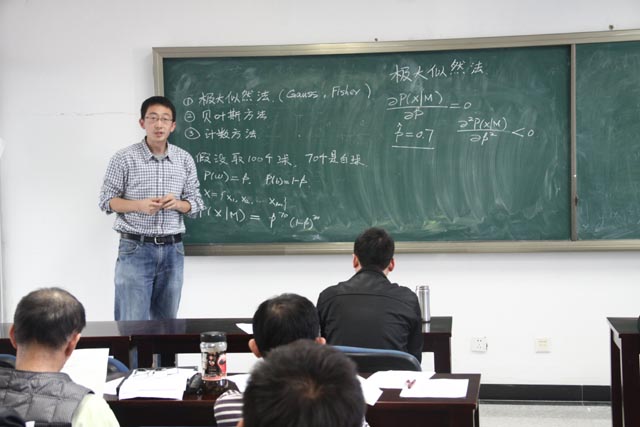 ① 极大似然法. (Gauss, Fisher)
② 贝叶斯方法
③ 计数方法
假设取100个球, 70个是白球.
P(w)=p, P(b)=1-p.
X={x₁, x₂, ... x₁₀₀}
P(X|M) = p⁷⁰ (1-p)³⁰
极大似然法
∂P(X|M)/∂p = 0
∂²P(X|M)/∂p² < 0
p̂=0.7